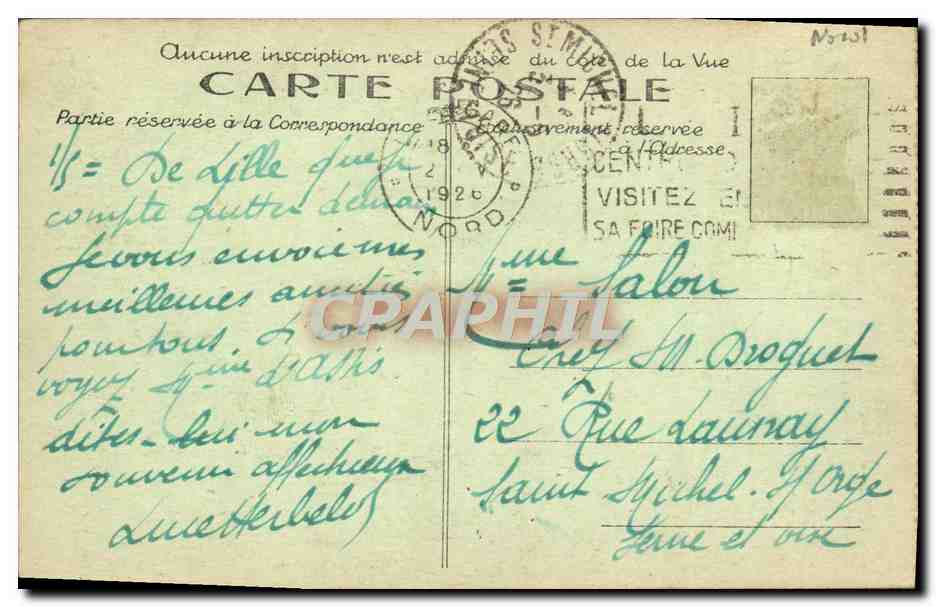 Nord
Aucune inscription n'est admise du côté de la Vue
CARTE POSTALE
Partie réservée à la Correspondance
Exclusivement réservée
à l'Adresse
ST MICHEL
18
2
1926
NORD
CENTR
VISITEZ EN
SA FOIRE COM
1/5 = De Lille que je
compte quitter demain
je vous envoie mes
meilleures amitiés
pour tous. Si vous
voyez Mme d'Assis
dîtes-lui mon
souvenir affectueux
Luce Herbelot
Mme Salon
Chez M Droguet
22 Rue Launay
Saint Michel. S/ Orge
Seine et oise
CPAPHIL